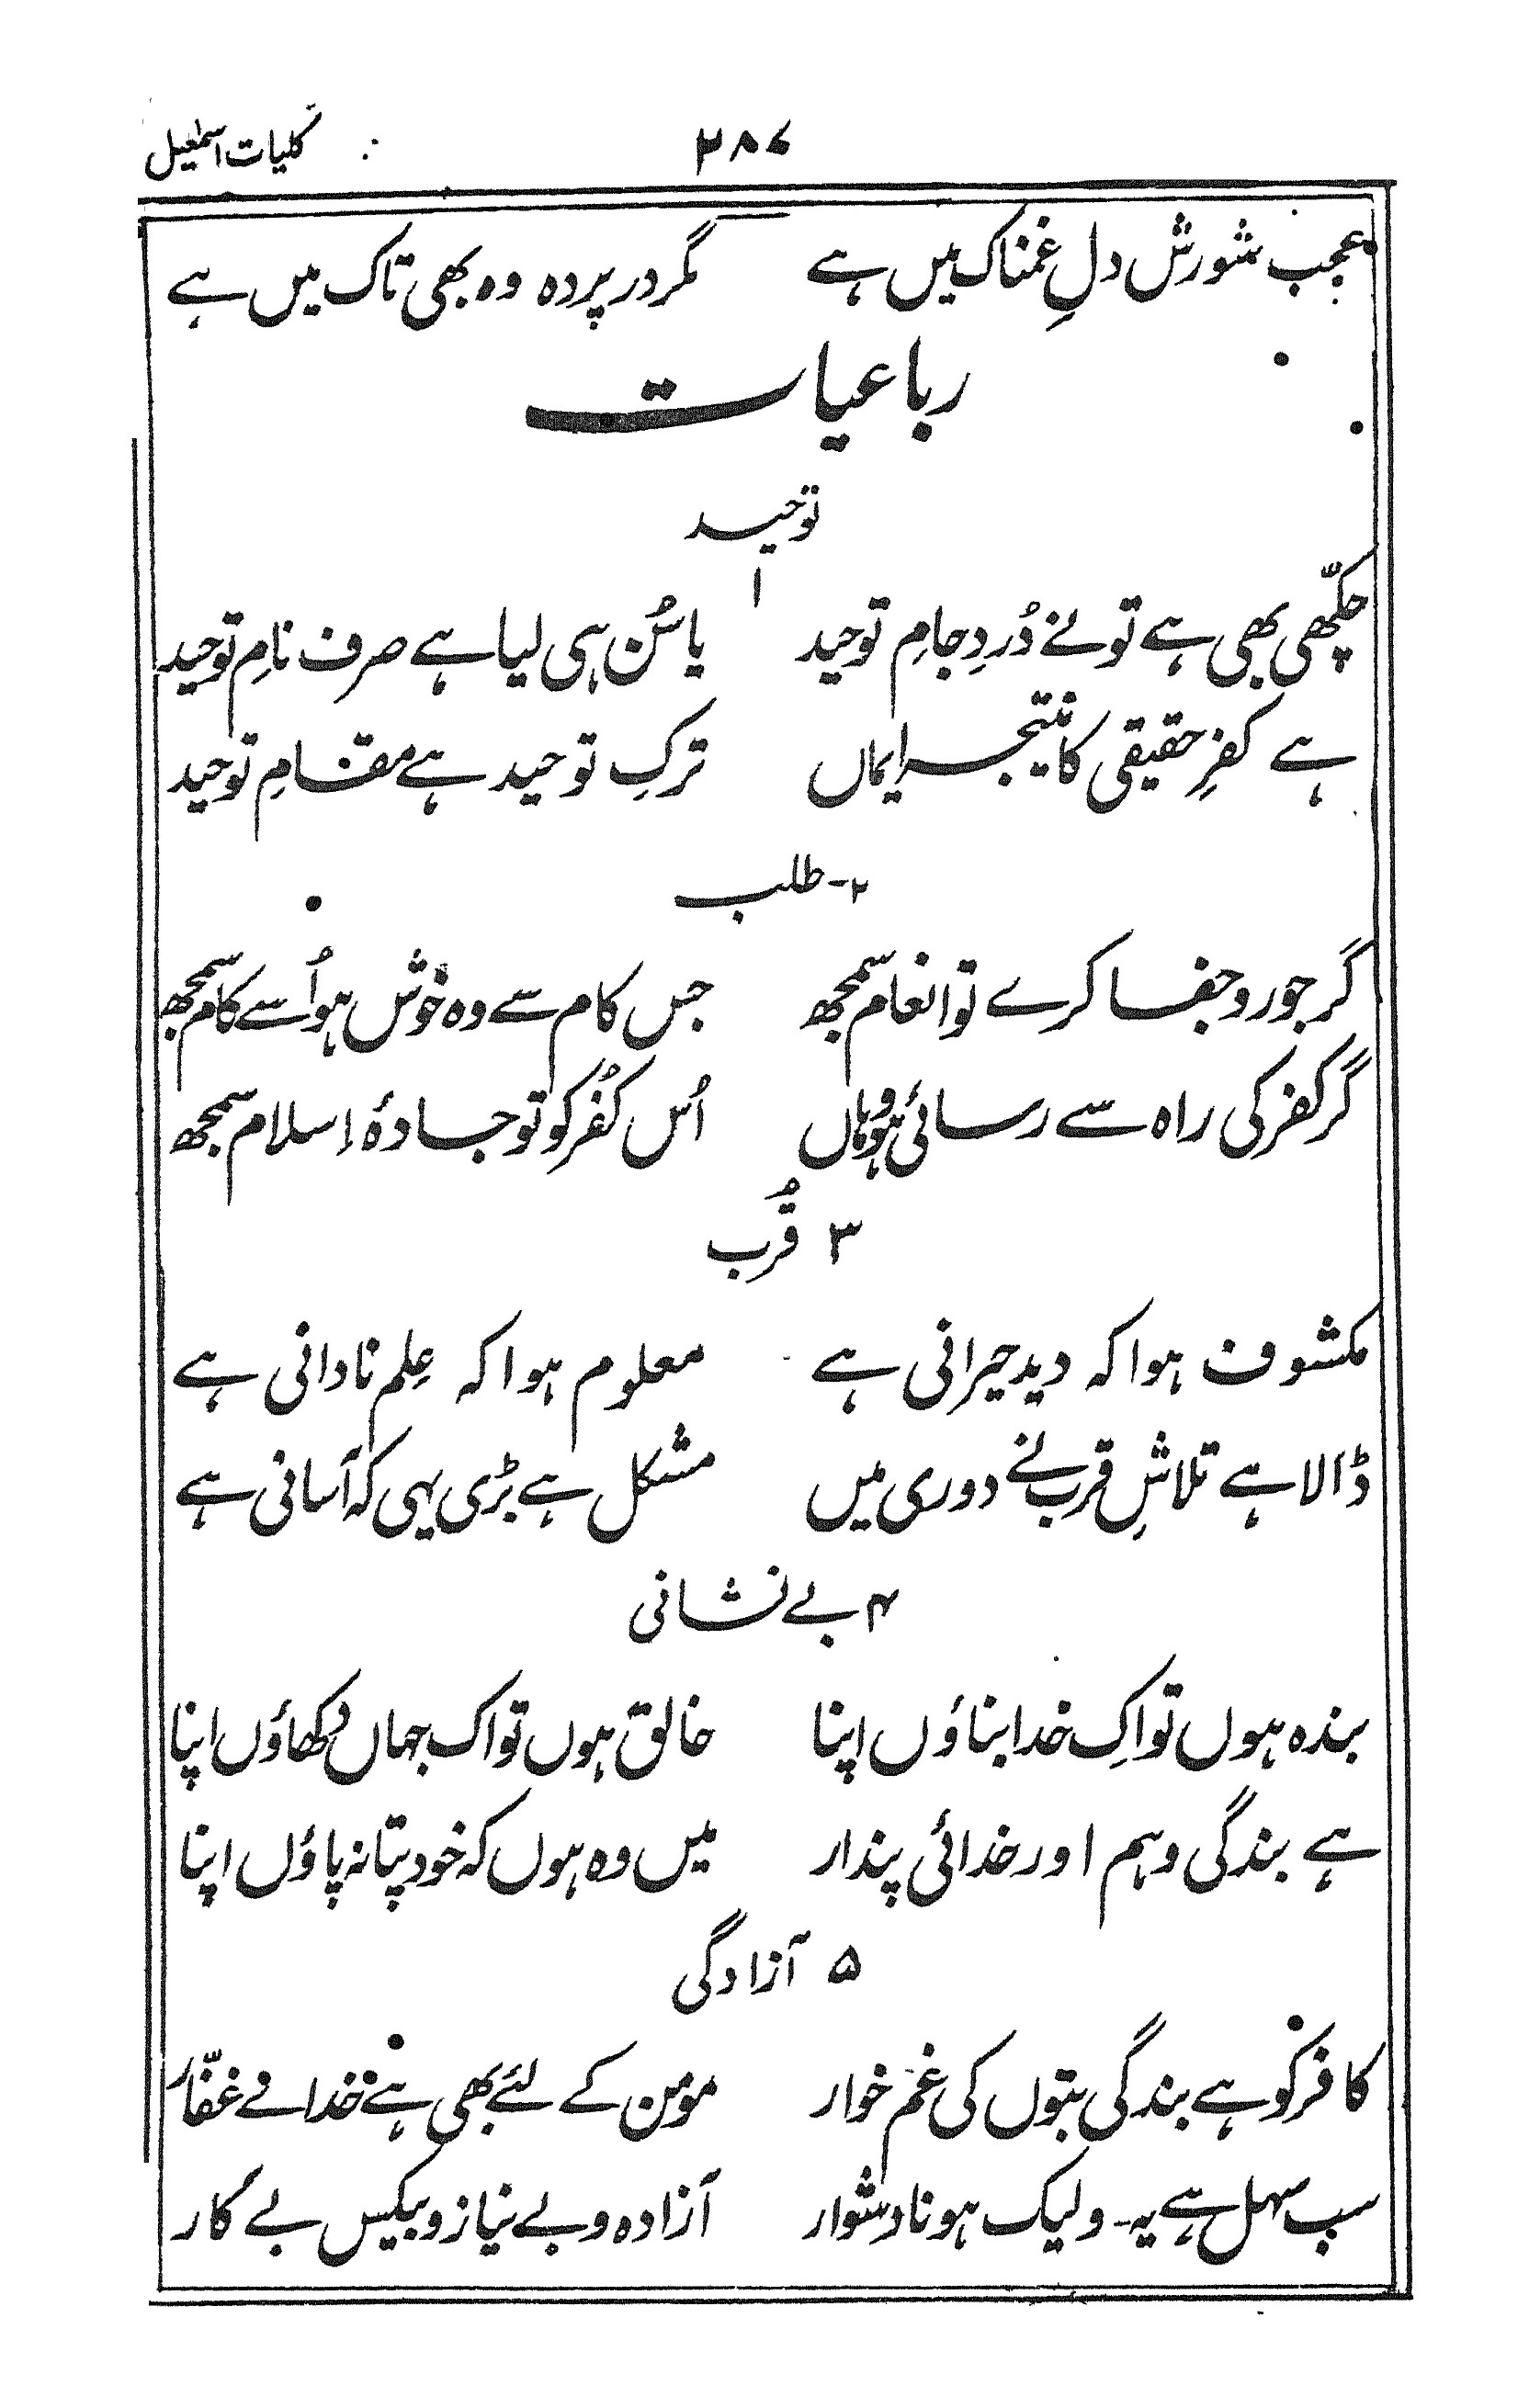 ۲۸۷ کلیات اسمٰعیل
عجب شورش دلِ غمناک میں ہے مگر در پردہ وہ بھی تاک میں ہے
رباعیات
توحید
۱
چکھّی بھی ہے تونے دُردِ جامِ توحید یا سُن ہی لیا ہے صرف نامِ توحید
ہے کفرِ حقیقی کا نتیجہ ایماں ترکِ توحید ہے مقامِ توحید
۲- طلب
گر جور و جفا کرے تو انعام سمجھ جس کام سے وہ خوش ہو اُسے کام سمجھ
گر کفر کی راہ سے رسائی ہو وہاں اُس کُفر کو تو جادۂ اِسلام سمجھ
۳ قُرب
مکشوف ہوا کہ دید حیرانی ہے معلوم ہوا کہ عِلم نادانی ہے
ڈالا ہے تلاشِ قرب نے دوری میں مشکل ہے بڑی یہی کہ آسانی ہے
۴ بے نشانی
بندہ ہوں تو اِک خدا بناؤں اپنا خالق ہوں تو اک جہاں دکھاؤں اپنا
ہے بندگی وہم اور خدائی پندار میں وہ ہوں کہ خود پتا نہ پاؤں اپنا
۵ آزادگی
کافر کو ہے بندگی بتوں کی غم خوار مومن کے لئے بھی ہے خدائے غفّار
سب سہل ہے یہ۔ ولیک ہونا دشوار آزادہ و بے نیاز و بیکس بے کار